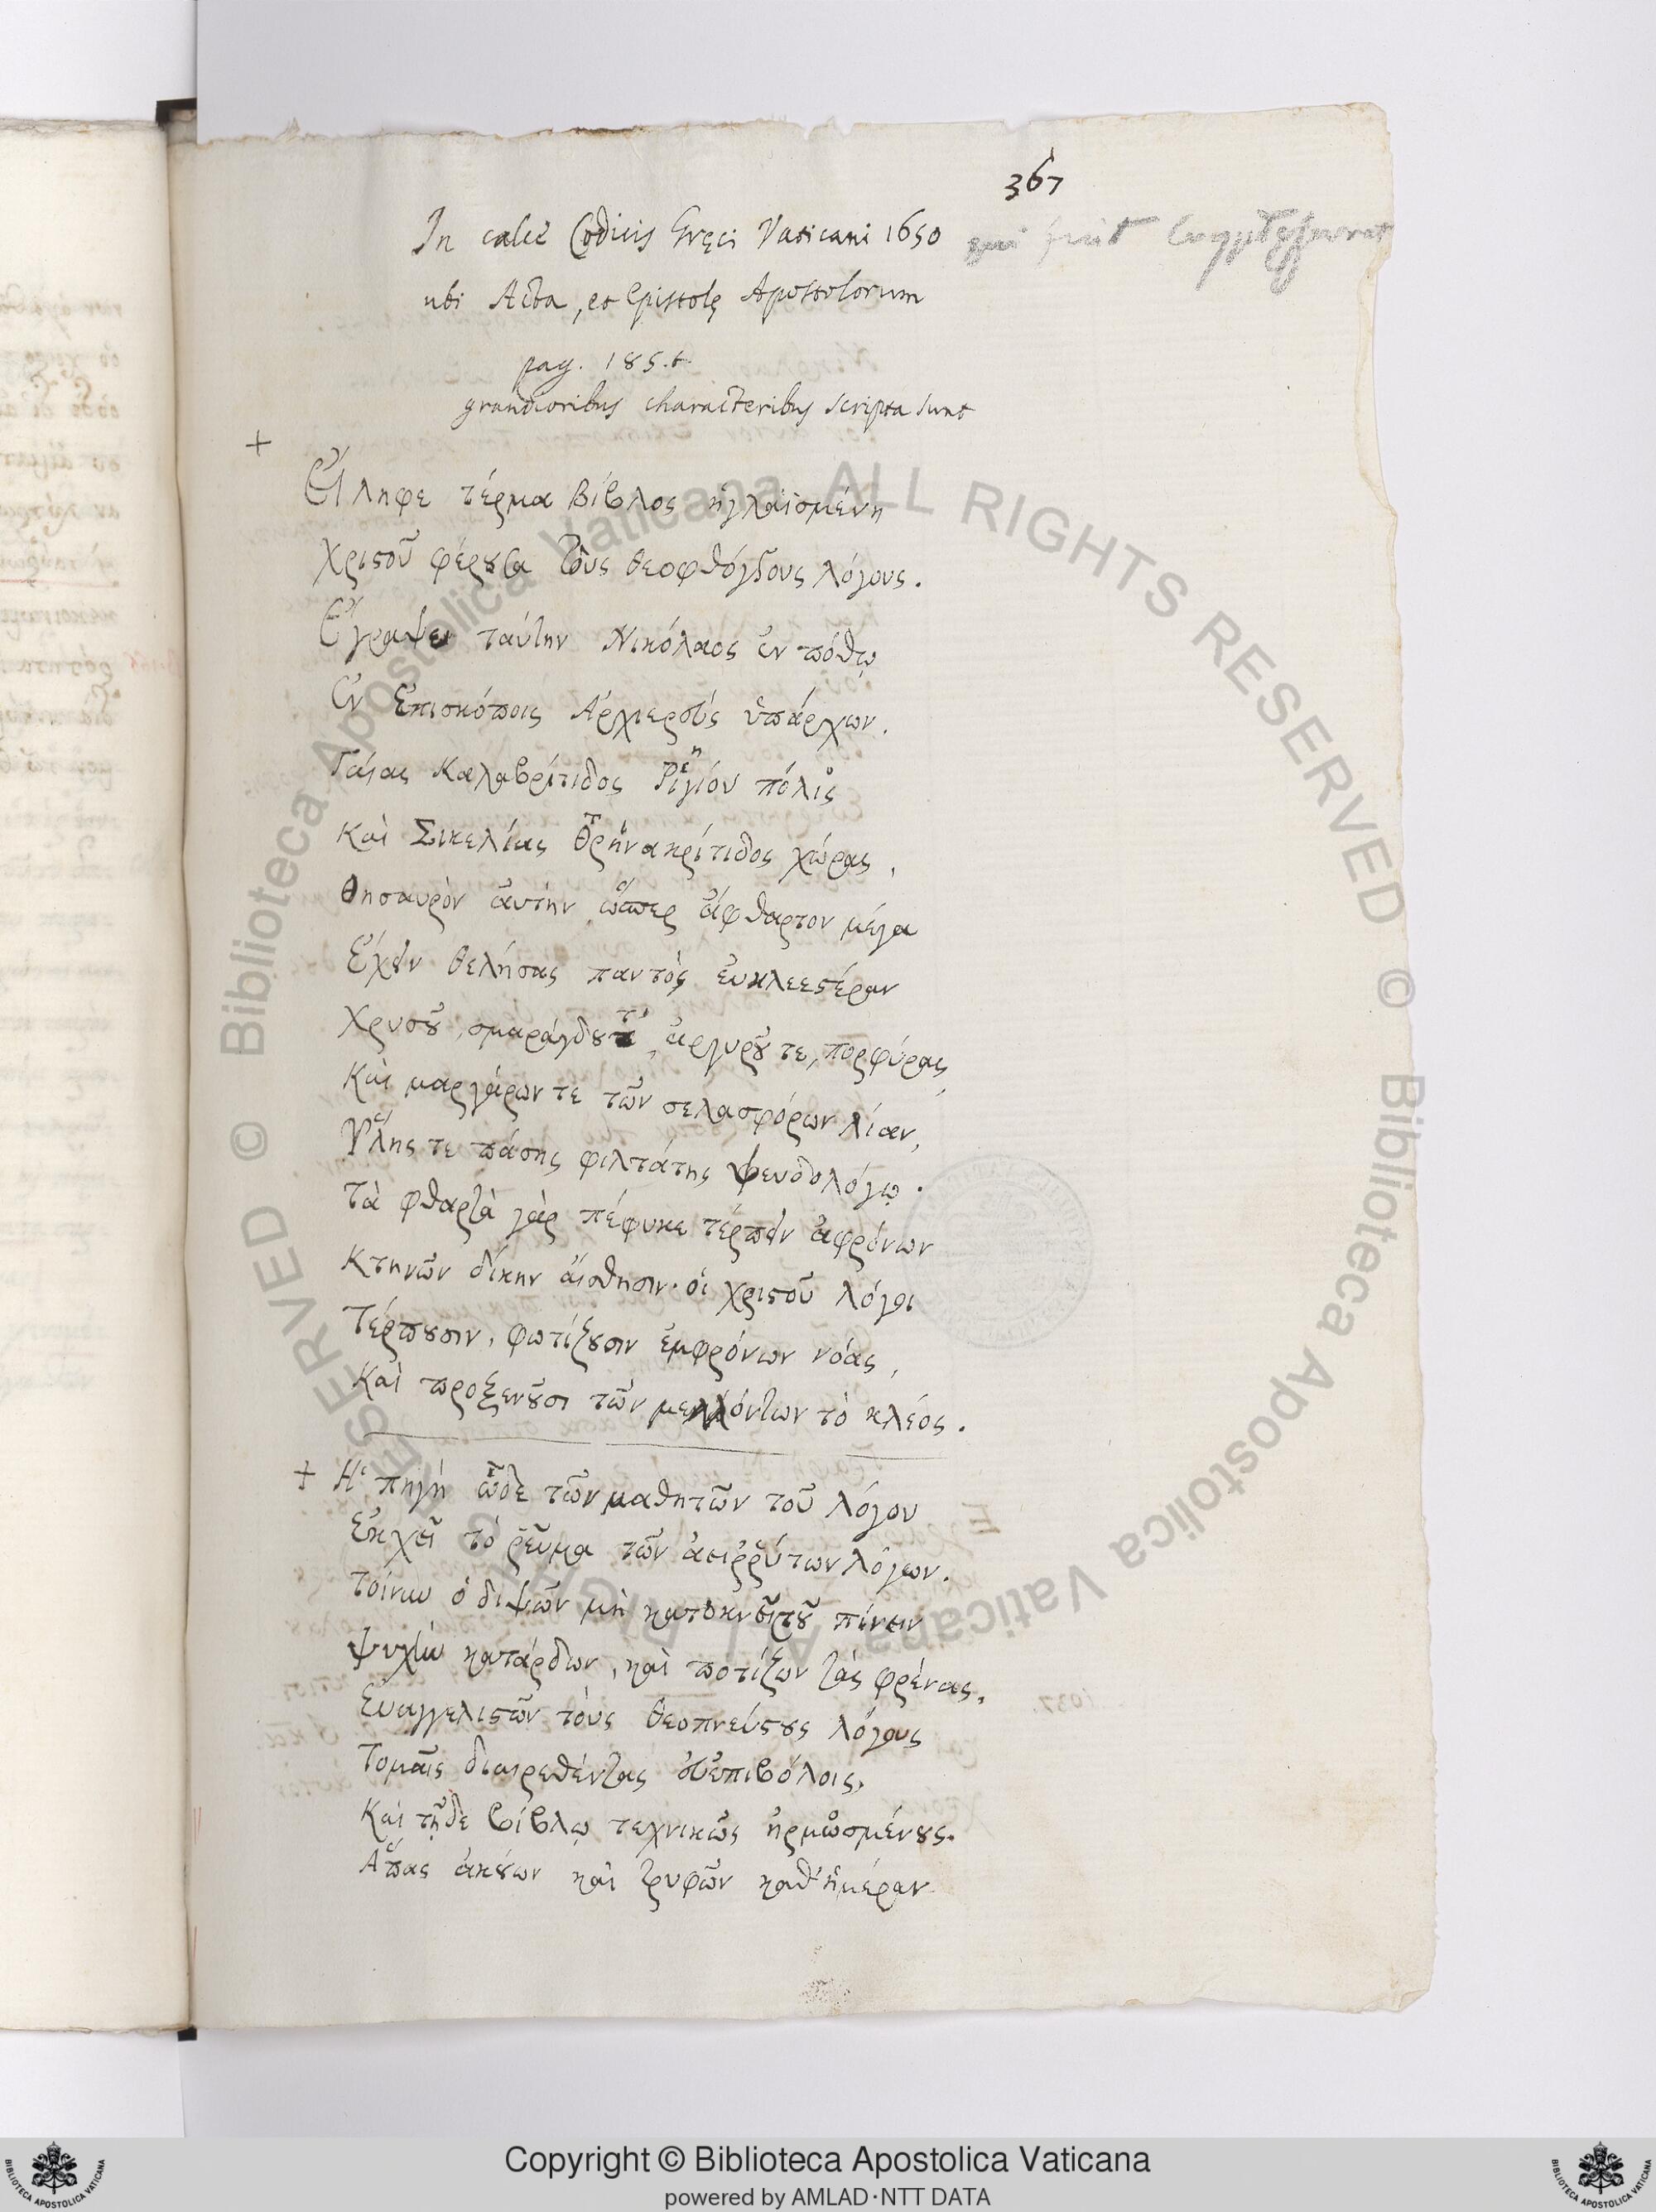 367
In calce Codicis Gręci Vaticani 1650 qui fuit Cryptoferrat
ubi Acta, et Epistolę Apostolorum
pag. 185.t
grandioribus characteribus scripta sunt
+
Εἴληφε τέρμα βίβλος ἠγλαϊσμένη
Χριςοῦ φέρȣσα τοὺς θεοφθόγγους λόγους.
Ἔγραψε ταύτην Νικόλαος ἐν πόθῳ
Ἐν Ἐπισκόποις Ἀρχιερεὺς ὑπάρχων.
Γαίας Καλαβρίτιδος Ῥιγίου πόλις
Καὶ Σικελίας Θρηνακρίτιδος χώρας,
Θησαυρὸν αὐτὴν ὥσπερ ἄφθαρτον μέγα
Ἔχειν θελήσας παντὸς εὐκλεεςέραν
Χρυσȣ͂, σμαράγδȣ τ', ἀργυρȣ͂ τε, πορφύρας,
Καὶ μαργάρων τε τῶν σελασφόρων λίαν,
Ὕλης τε πάσης φιλτάτης ψευδολόγῳ.
Τὰ φθαρτὰ γὰρ πέφυκε τέρπειν ἀφρόνων
Κτηνῶν δίκην αἴσθησιν· οἱ Χριςοῦ λόγοι
Τέρπȣσιν, φωτίζȣσιν ἐμφρόνων νόας,
Καὶ προξενȣ͂σι τῶν μελλόντων τὸ κλέος.
+ Ἡ πηγὴ ὧδε τῶν μαθητῶν τοῦ λόγου
Ἐκχεῖ τὸ ῥεῦμα τῶν ἀειῤῥύτων λόγων.
Τοίνυν ὁ διψῶν μὴ κατοκνείτȣ πίνειν
Ψυχὴν κατάρδων, καὶ ποτίζων τὰς φρένας,
Εὐαγγελιςῶν τοὺς θεοπνεύςȣς λόγους
Τομαῖς διαιρεθέντας εὐεπιβόλοις,
Καὶ τῇδε βίβλῳ τεχνικῶς ἡρμοσμένȣς.
Ἅπας ἀκȣ́ων καὶ τρυφῶν καθ' ἡμέραν
© Biblioteca Apostolica Vaticana ALL RIGHTS RESERVED
Copyright © Biblioteca Apostolica Vaticana
powered by AMLAD·NTT DATA
BIBLIOTECA APOSTOLICA VATICANA
BIBLIOTECA APOSTOLICA VATICANA